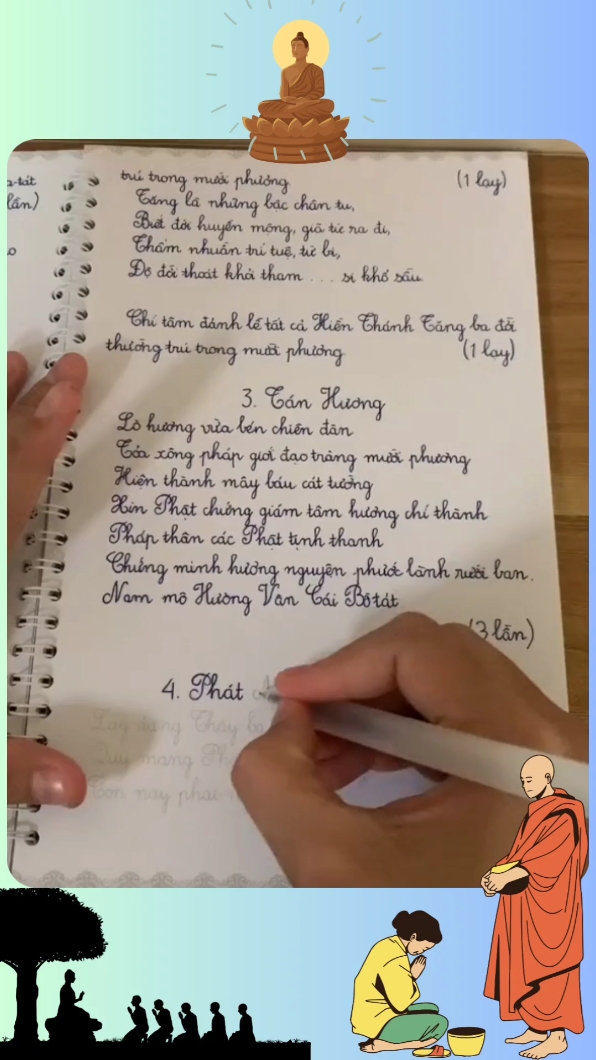 a-tát
lần)
trú trong mười phương (1 lạy)
Tăng là những bậc chân tu,
Biết đời huyễn mộng, giã từ ra đi,
Thấm nhuần trí tuệ, từ bi,
Độ đời thoát khỏi tham ... si khổ sầu
Chí tâm đảnh lễ tất cả Hiền Thánh Tăng ba đời
thường trú trong mười phương (1 lạy)
3. Tán Hương
Lò hương vừa bén chiên đàn
Tỏa xông pháp giới đạo tràng mười phương
Hiện thành mây báu cát tường
Xin Phật chứng giám tâm hương chí thành
Pháp thân các Phật tịnh thanh
Chứng minh hương nguyện phước lành rưới ban.
Nam mô Hương Vân Cái Bồ tát
(3 lần)
4. Phát
Lạy đấng Thầy ba
Quy mạng Ph
Con nay phát